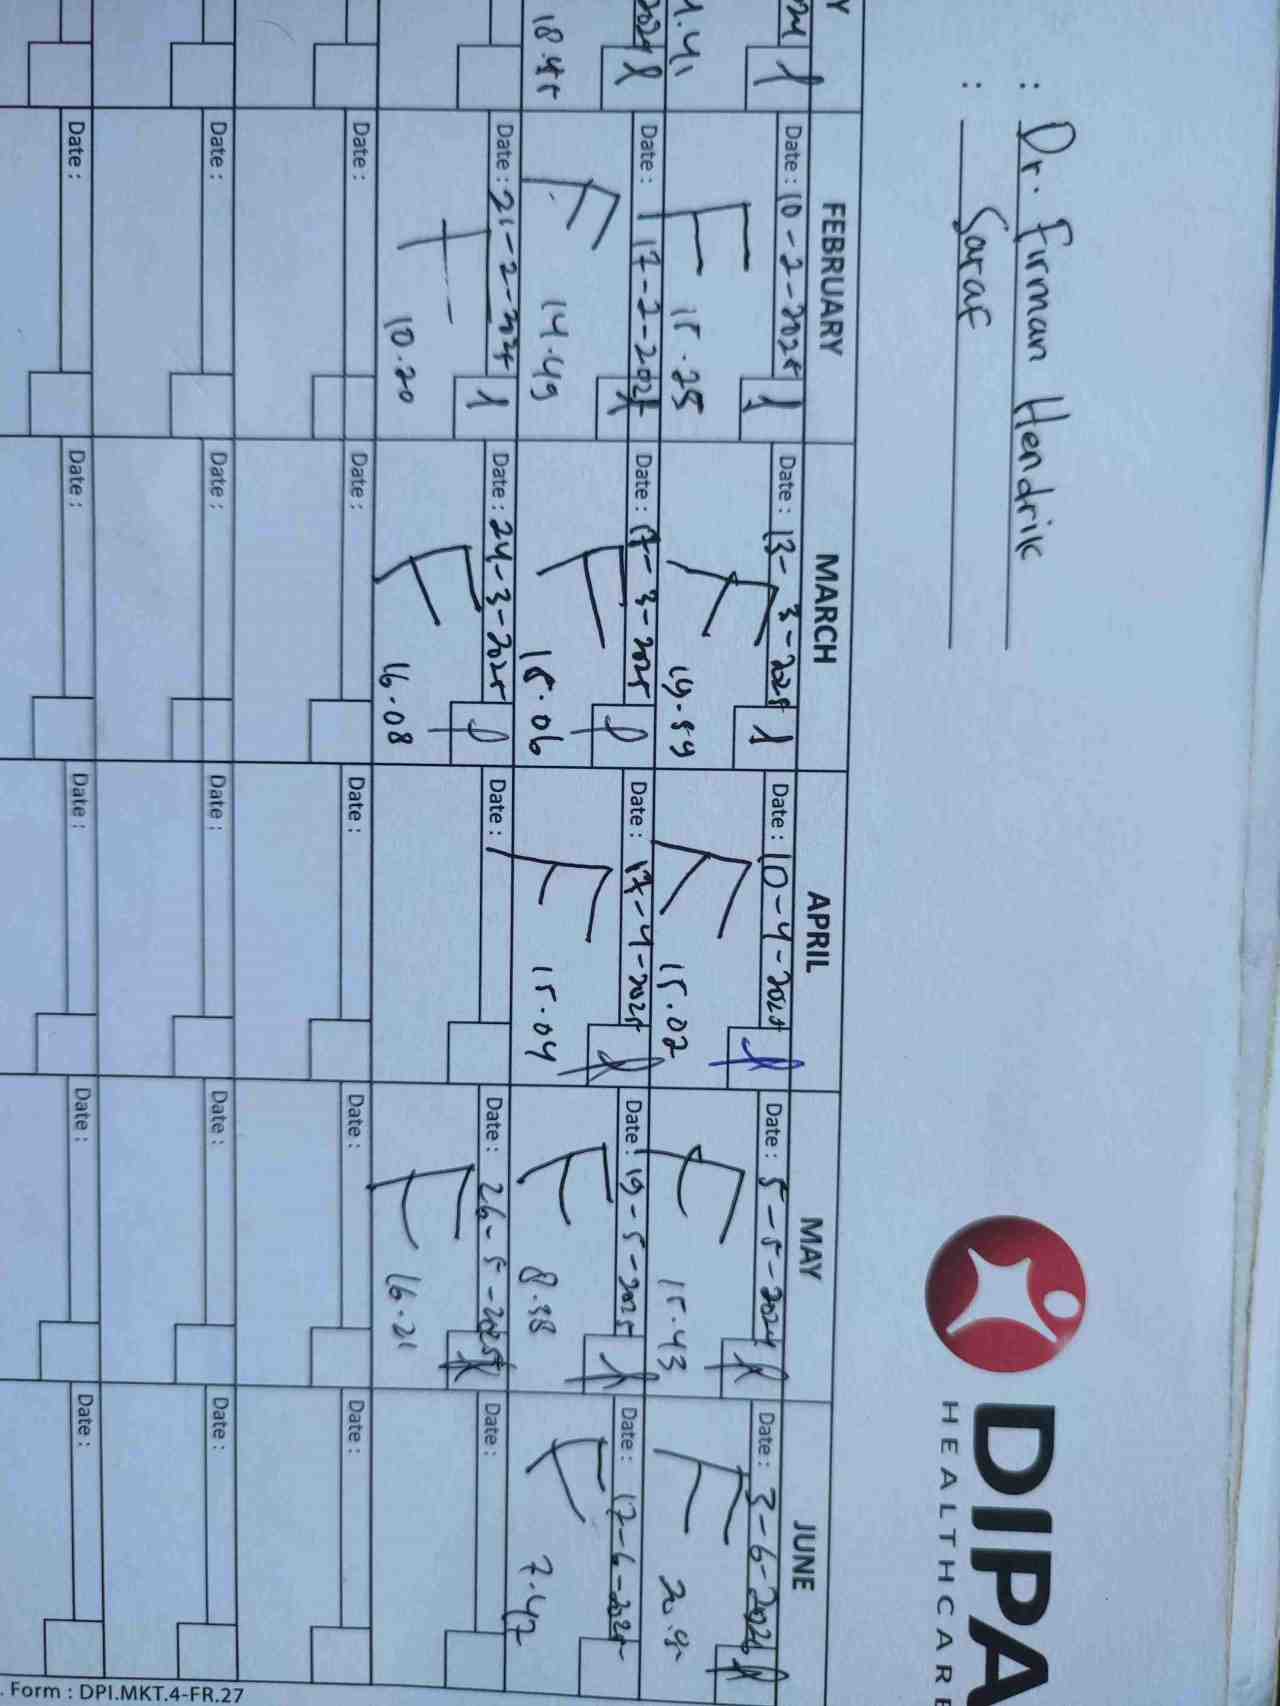 : Dr. Firman Hendrik
: Saraf
DIPA
HEALTHCARE
Y FEBRUARY MARCH APRIL MAY JUNE
Date : 10-2-2025 Date : 13-3-2025 Date : 10-4-2025 Date : 5-5-2024 Date : 3-6-2025
1.41 15.25 19.59 15.02 15.43
Date : 17-2-2025 Date : 17-3-2025 Date : 17-4-2025 Date : 19-5-2025 Date : 17-6-2025
18.45 14.49 15.06 15.04 8.58 7.47
Date : 21-2-2025 Date : 24-3-2025 Date : Date : 26-5-2025 Date :
10.20 16.08 16.21
Date : Date : Date : Date : Date :
Date : Date : Date : Date : Date :
Date : Date : Date : Date : Date :
. Form : DPI.MKT.4-FR.27